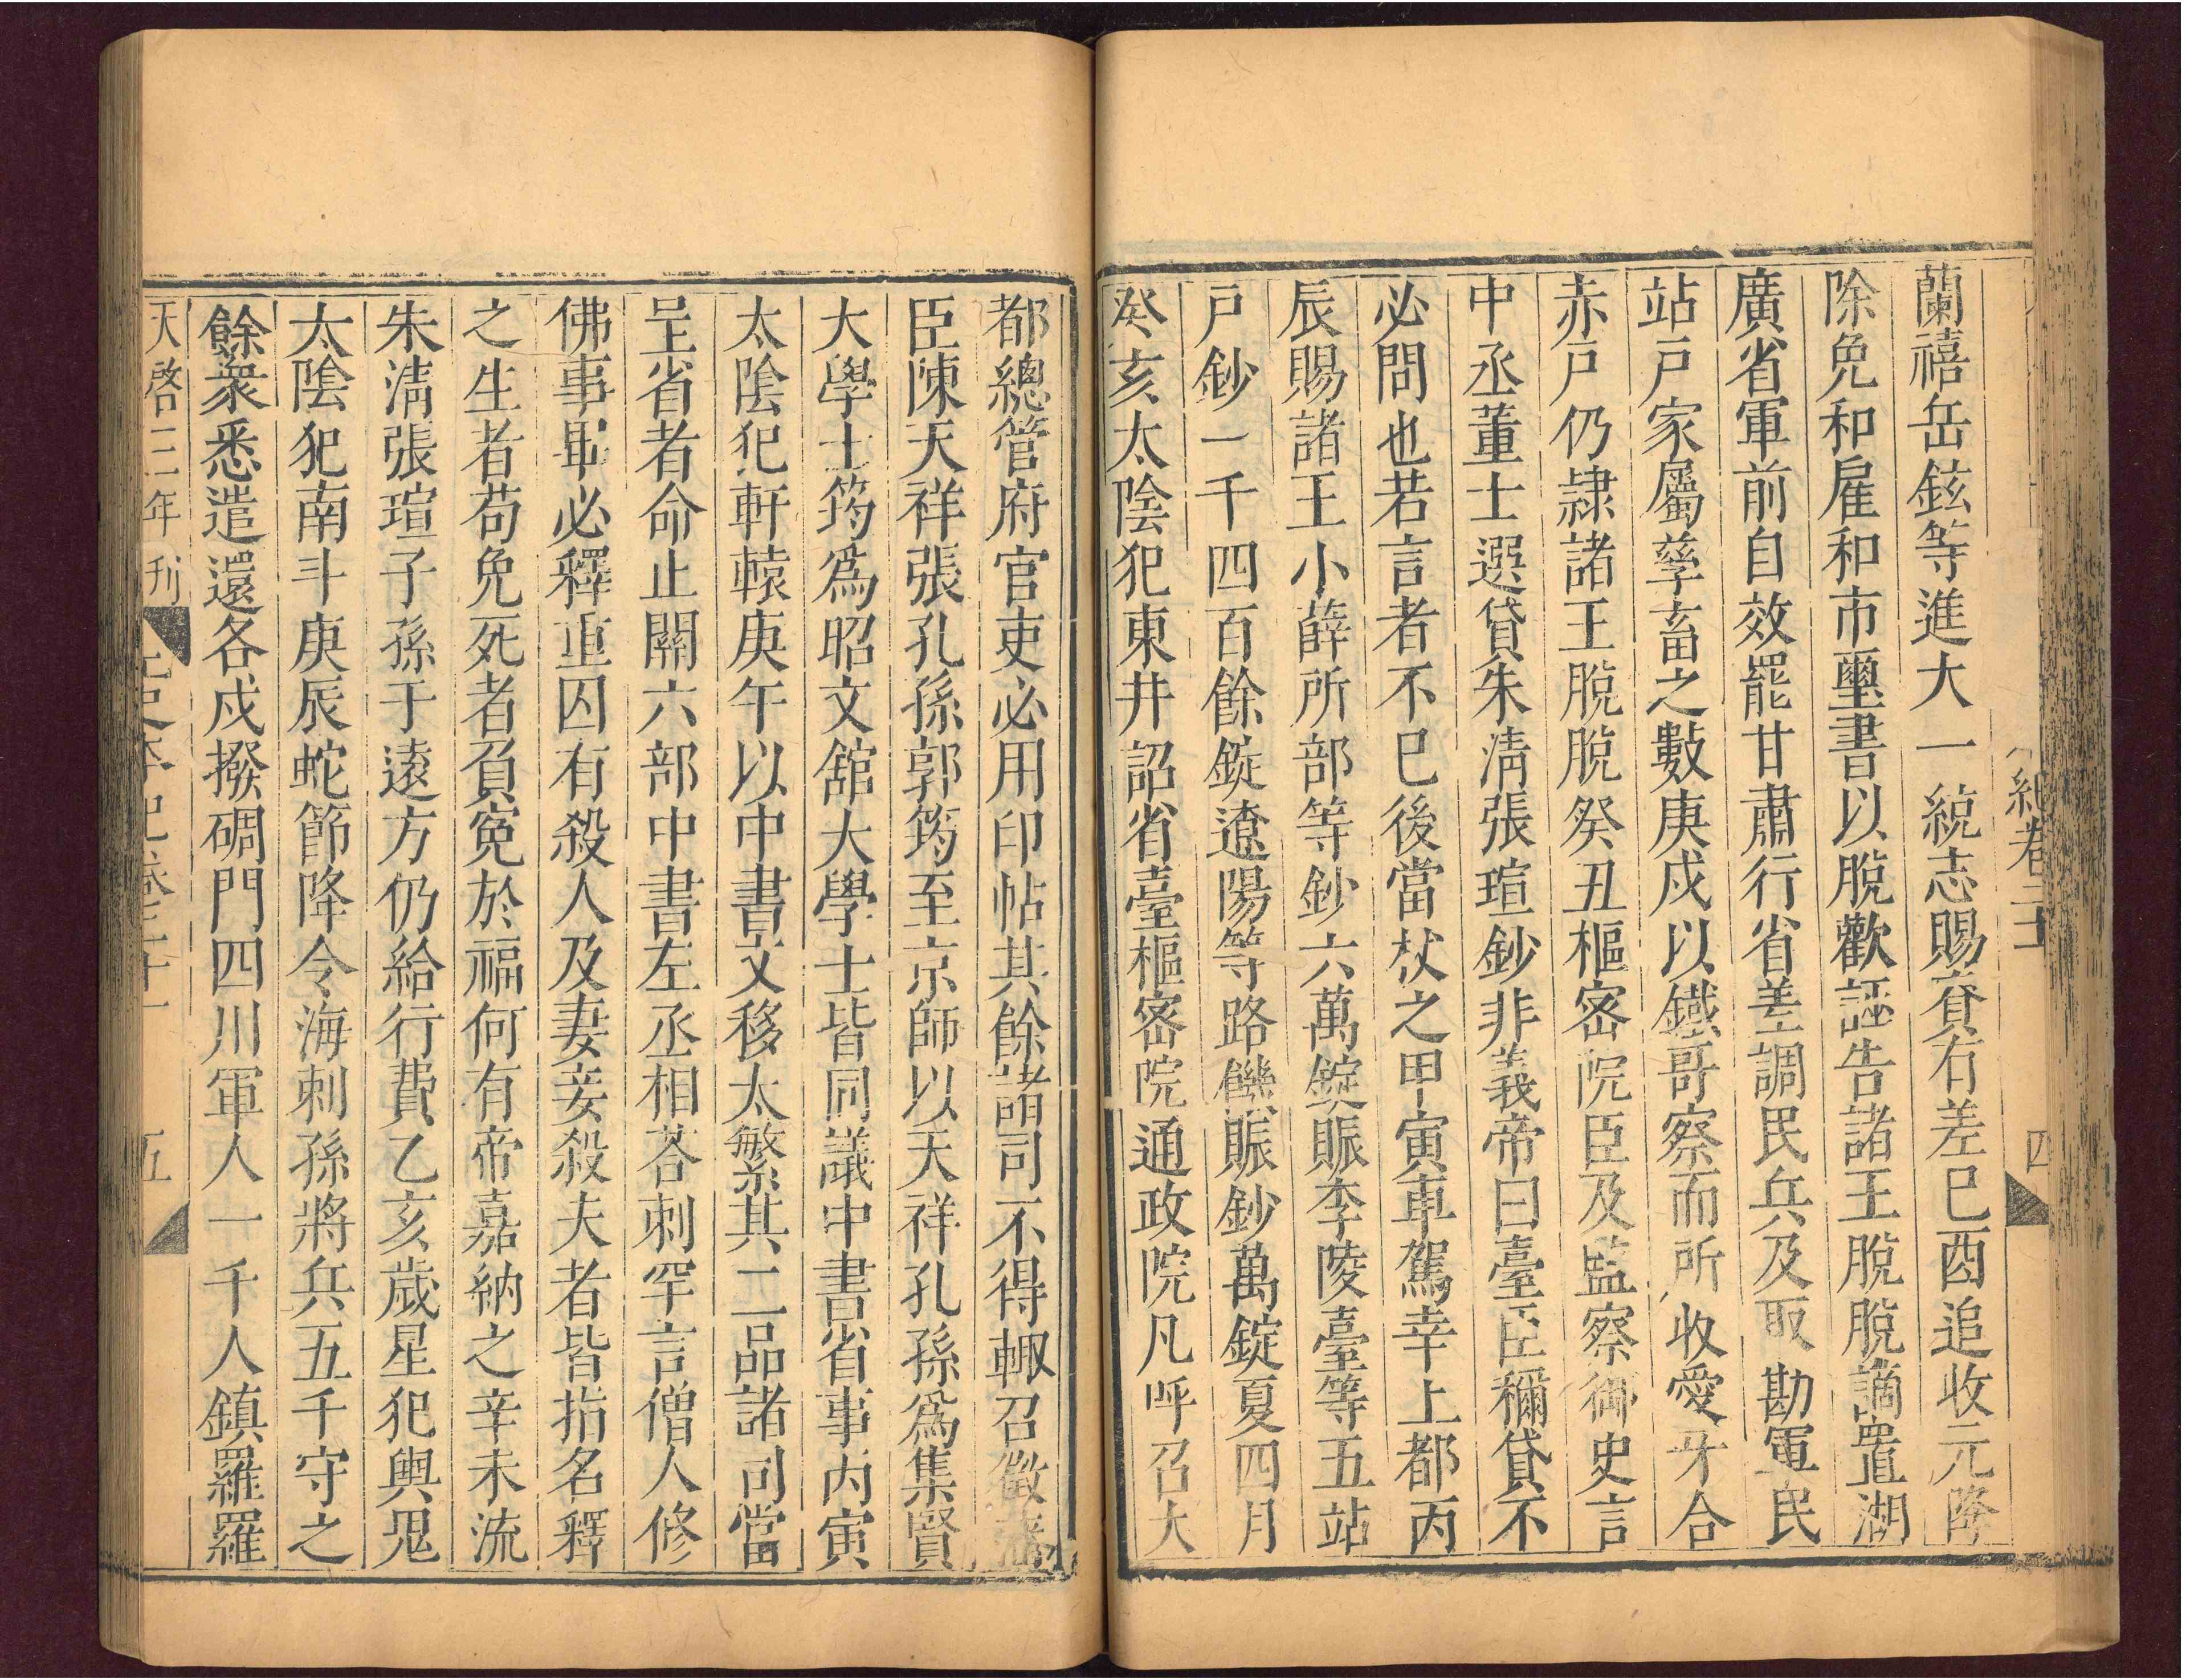 紀卷二十
四
蘭禧岳鉉等進大一統志賜賚有差巳酉追收元降
除免和雇和市璽書以脫歡誣告諸王脫脫謫置湖
廣省軍前自效罷甘肅行省差調民兵及取勘軍民
站戸家屬孳畜之數庚戍以鐵哥察而所收愛牙合
赤戸仍隷諸王脫脫癸丑樞宻院臣及監察御史言
中丞董士選貸朱淸張瑄鈔非義帝曰臺臣稱貸不
必問也若言者不巳後當杖之甲寅車駕幸上都丙
辰賜諸王小薛所部等鈔六萬錠賑李陵臺等五站
戸鈔一千四百餘錠遼陽等路饑賑鈔萬錠夏四月
癸亥太陰犯東井詔省臺樞宻院通政院凡呼召大
都總管府官吏必用印帖其餘諸司不得輙召徵藩
臣陳天祥張孔孫郭筠至京師以天祥孔孫爲集賢
大學士筠爲昭文舘大學士皆同議中書省事丙寅
太陰犯軒轅庚午以中書文移太繁其二品諸司當
呈省者命止關六部中書左丞相荅刺罕言僧人修
佛事畢必釋重囚有殺人及妻妾殺夫者皆指名釋
之生者苟免死者負寃於福何有帝嘉納之辛未流
朱淸張瑄子孫于遠方仍給行費乙亥歲星犯輿鬼
太陰犯南斗庚辰蛇節降令海刺孫將兵五千守之
餘衆悉遣還各戍撥碉門四川軍人一千人鎮羅羅
天啓三年刊
元史本紀卷二十一
五